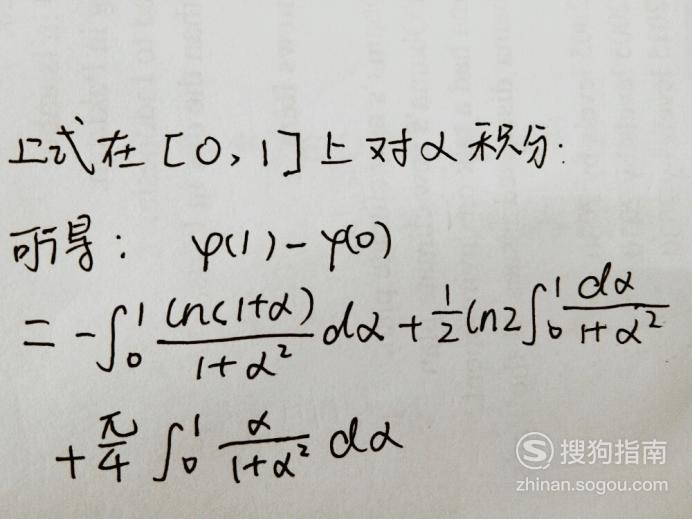 上式在[0,1]上对α积分:
可得: φ(1)-φ(0)
= -∫₀¹ ln(1+α)/(1+α²) dα + 1/2 ln2 ∫₀¹ dα/(1+α²)
+ π/4 ∫₀¹ α/(1+α²) dα
搜狗指南
zhinan.sogou.com